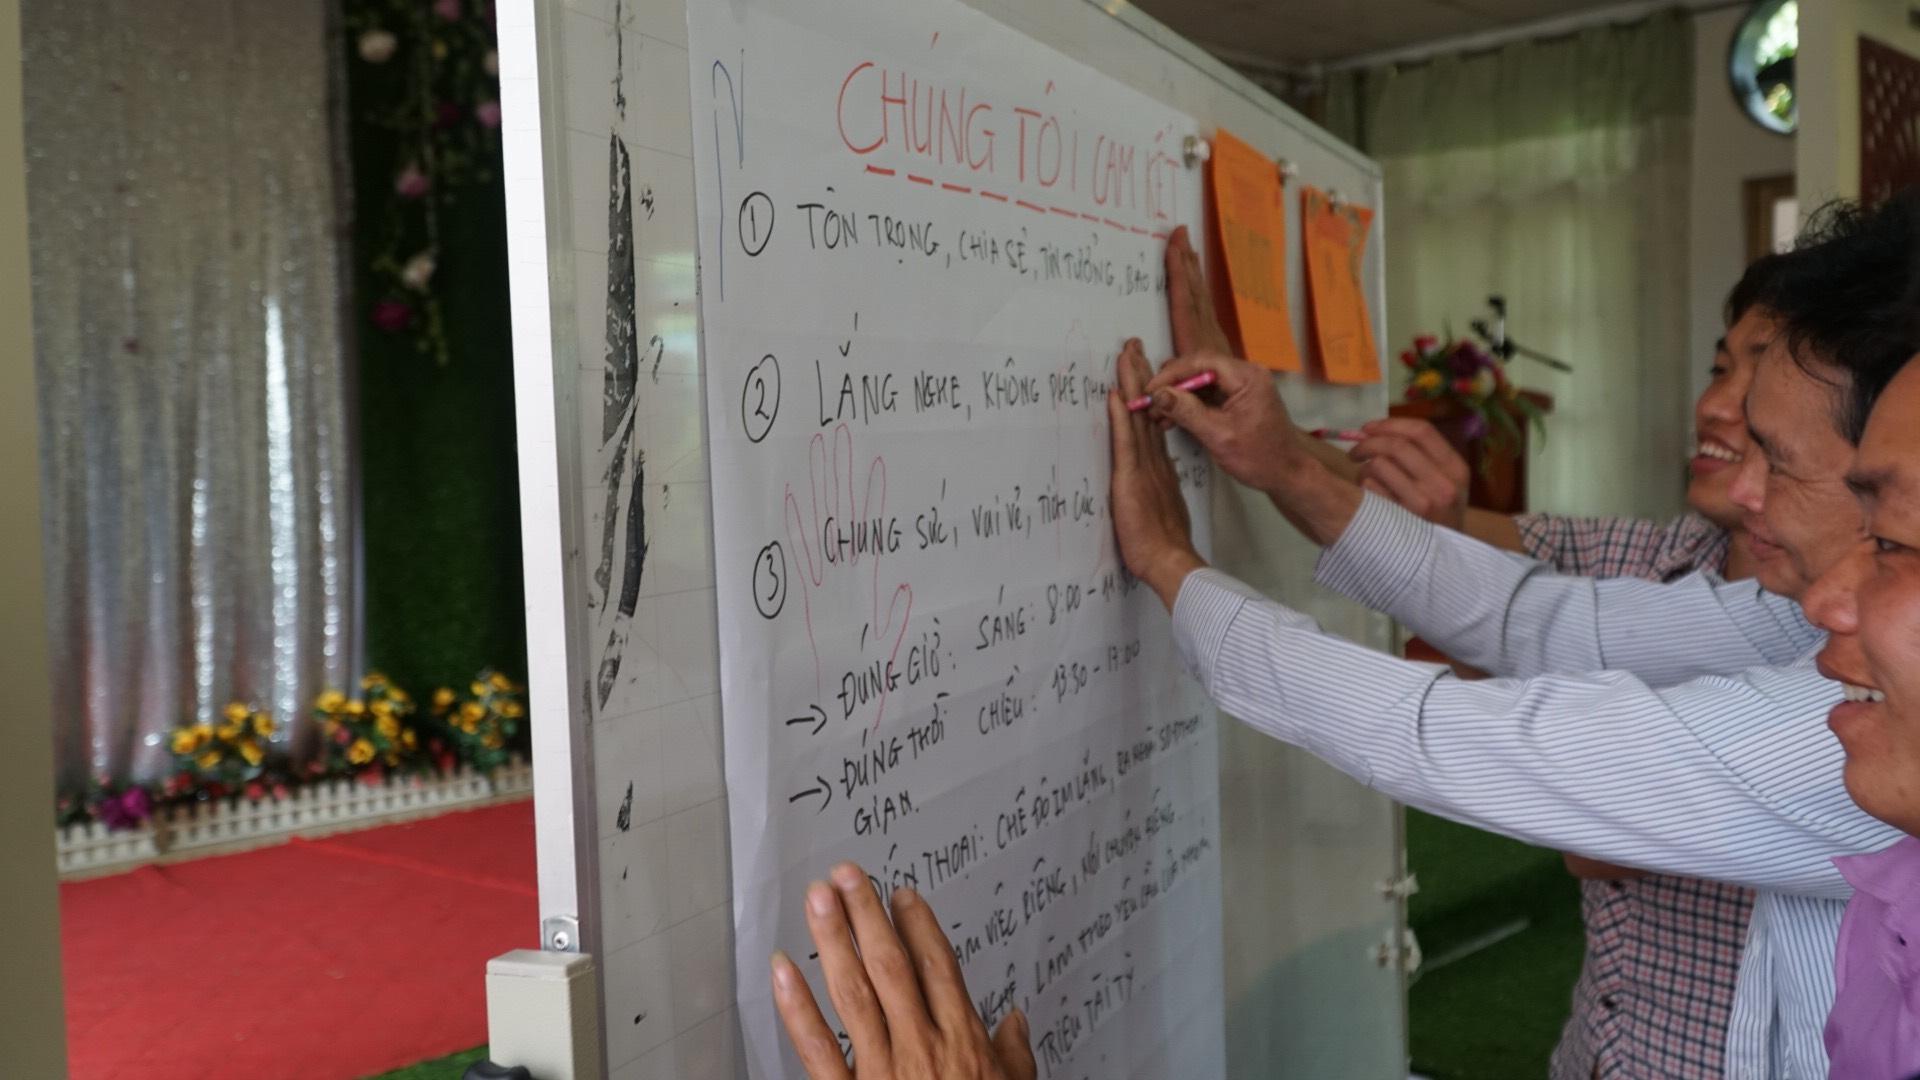 CHÚNG TÔI CAM KẾT
① TÔN TRỌNG, CHIA SẺ, TIN TƯỞNG, BẢO
② LẮNG NGHE, KHÔNG PHÊ PHÁN
③ CHUNG SỨC, VUI VẺ, TÍCH CỰC,
→ ĐÚNG GIỜ: SÁNG: 8:00 -
→ ĐÚNG THỜI CHIỀU: 13:30 - 17:00
GIAN.
ĐIỆN THOẠI: CHẾ ĐỘ IM LẶNG, RA NGOÀI
VIỆC RIÊNG, NÓI CHUYỆN RIÊNG
LÀM THEO YÊU CẦU CỦA NHÓM
TRIỆU TÀI TỲ.